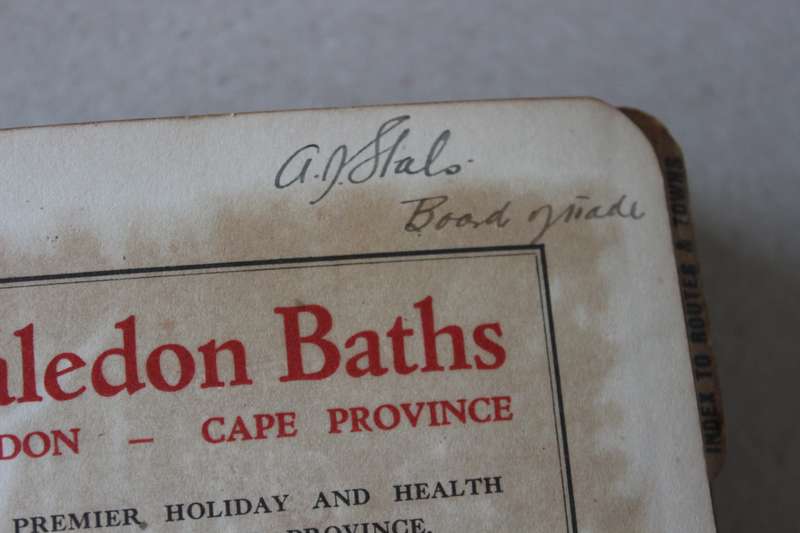 A. J. Stals.
Board of Trade
aledon Baths
DON – CAPE PROVINCE
PREMIER HOLIDAY AND HEALTH
PROVINCE.
INDEX TO ROUTES & TOWNS